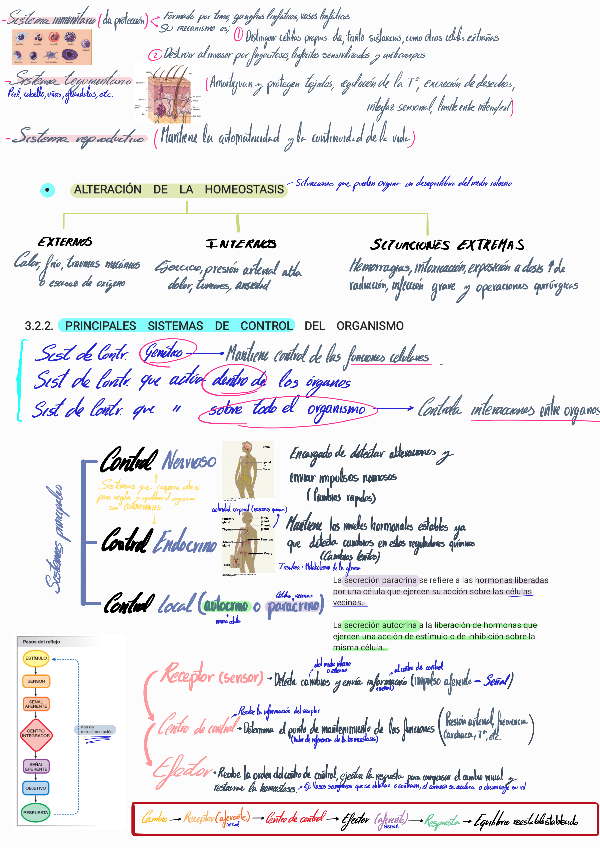 - Sistema inmunitario (da protección)
Formado por timo, ganglios linfáticos, vasos linfáticos
Su mecanismo es;
① Distinguir células propias de, tanto sustancias, como otras células extrañas
② Destruir al invasor por fagocitosis, linfocitos sensibilizados y anticuerpos
- Sistema tegumentario
Piel, cabello, uñas, glándulas, etc.
(Amortiguan y protegen tejidos, regulación de la T°, excreción de desechos,
interfaz sensorial, limita ente interno/ext)
- Sistema reproductivo (Mantiene la automaticidad y la continuidad de la vida)
ALTERACIÓN DE LA HOMEOSTASIS
Situaciones que pueden originar un desequilibrio del medio interno
EXTERNOS
Calor, frío, traumas mecánicos
o escasez de oxígeno
INTERNOS
Ejercicio, presión arterial alta
dolor, tumores, ansiedad
SITUACIONES EXTREMAS
Hemorragias, intoxicación, exposición a dosis ↑ de
radiación, infección grave y operaciones quirúrgicas
3.2.2. PRINCIPALES SISTEMAS DE CONTROL DEL ORGANISMO
Sist de Contr. Genético → Mantiene control de las funciones celulares
Sist de Contr. que actúa dentro de los órganos
Sist de Contr. que " sobre todo el organismo → Controla interacciones entre organos
Sistemas principales
Control Nervioso
Encargado de detectar alteraciones y
enviar impulsos nerviosos
(Cambios rápidos)
Control Endocrino
Mantiene los niveles hormonales estables ya
que detecta cambios en estos reguladores químicos
(Cambios lentos)
Control Local (autocrino o paracrino)
La secreción paracrina se refiere a las hormonas liberadas
por una célula que ejercen su acción sobre las células
vecinas.
La secreción autocrina a la liberación de hormonas que
ejercen una acción de estímulo o de inhibición sobre la
misma célula.
Pasos del reflejo
ESTÍMULO
SENSOR
SEÑAL
AFERENTE
CENTRO
INTEGRADOR
SEÑAL
EFERENTE
OBJETIVO
RESPUESTA
Receptor (sensor) → Detecta cambios y envía información (impulso aferente → Señal)
del medio interno
o externo
al centro de control
Centro de control → Determina el punto de mantenimiento de las funciones (Presión arterial, frecuencia
cardíaca, T°, etc.)
Recibe la información del receptor
(valor de referencia de la homeostasis)
Efector → Recibe la orden del centro de control, ejecuta la respuesta para compensar el cambio inicial y
restaurar la homeostasis
Cambio → Receptor (aferente) → Centro de control → Efector (eferente) → Respuesta → Equilibrio reestablecido